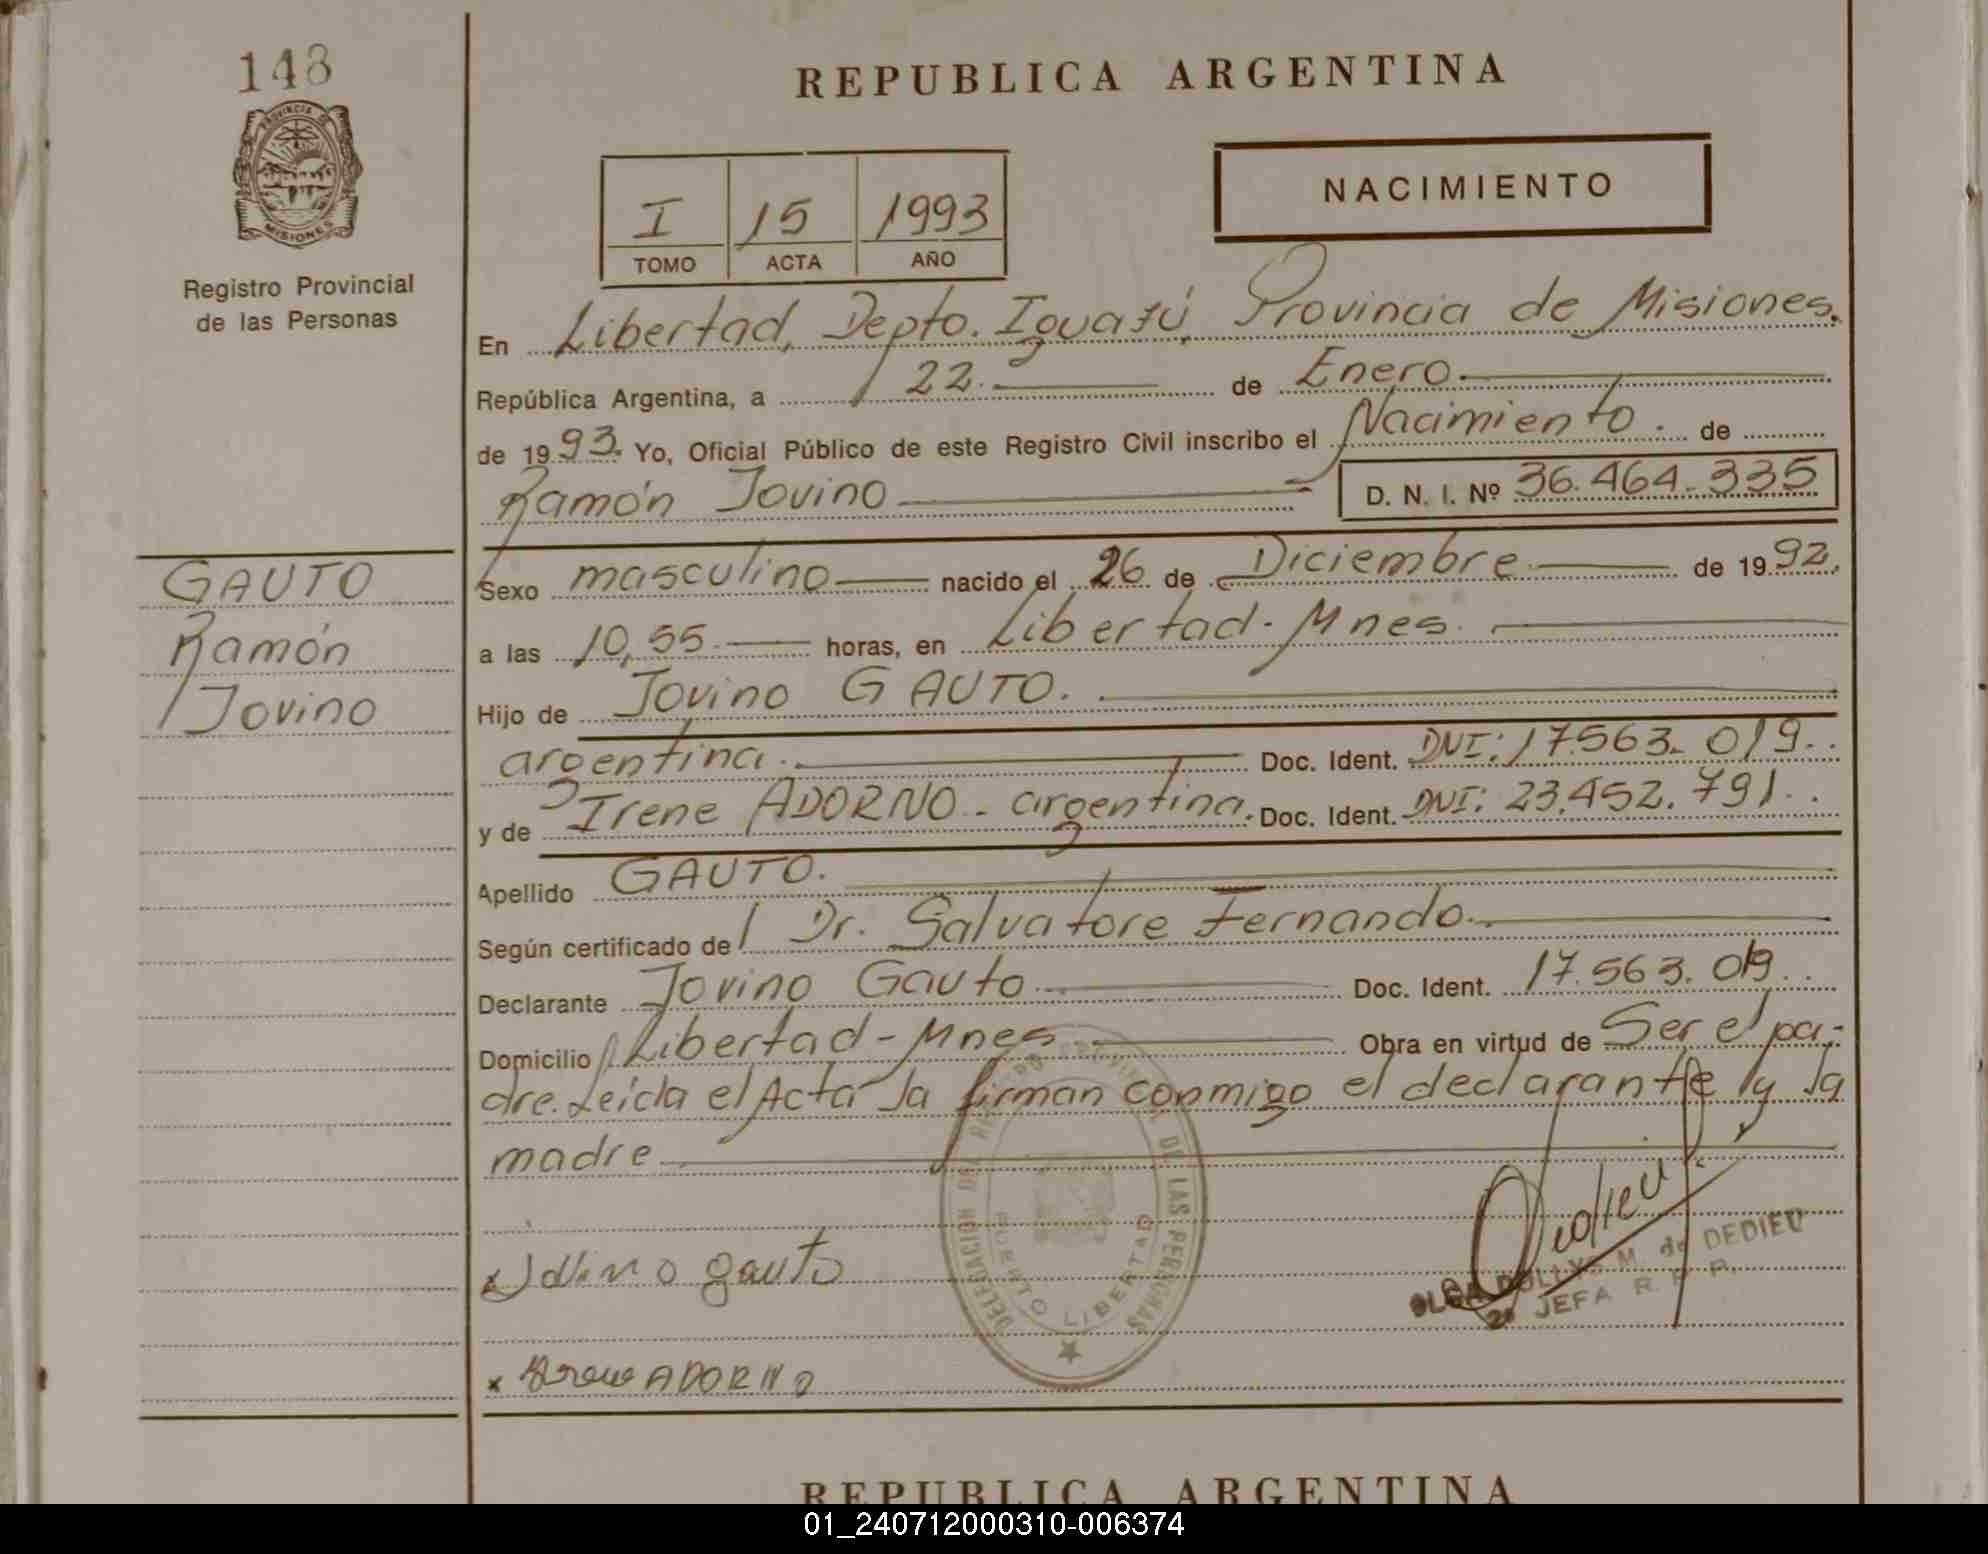 148
PROVINCIA DE
MISIONES
Registro Provincial
de las Personas
GAUTO
Ramón
Jovino
REPUBLICA ARGENTINA
I 15 1993
TOMO ACTA AÑO
NACIMIENTO
En Libertad, Depto. Iguazú Provincia de Misiones.
República Argentina, a 22. de Enero
de 1993. Yo, Oficial Público de este Registro Civil inscribo el Nacimiento. de
Ramón Jovino D. N. I. Nº 36.464.335
Sexo masculino nacido el 26 de Diciembre de 1992.
a las 10,55 horas, en Libertad-Mnes.
Hijo de Jovino GAUTO.
argentina. Doc. Ident. DNI: 17.563.019..
y de Irene ADORNO - argentina. Doc. Ident. DNI: 23.452.791..
Apellido GAUTO.
Según certificado de Dr. Salvatore Fernando.
Declarante Jovino Gauto Doc. Ident. 17.563.019..
Domicilio Libertad-Mnes Obra en virtud de Ser el pa-
dre. Leída el Acta la firman conmigo el declarante y la
madre
DELEGACION DEL REGISTRO PROVINCIAL DE LAS PERSONAS
PUERTO LIBERTAD
Dedieu
OLGA DOLLYS M. de DEDIEU
JEFA R. P. P.
x Jovino gauto
x Irene ADORNO
REPUBLICA ARGENTINA
01_240712000310-006374